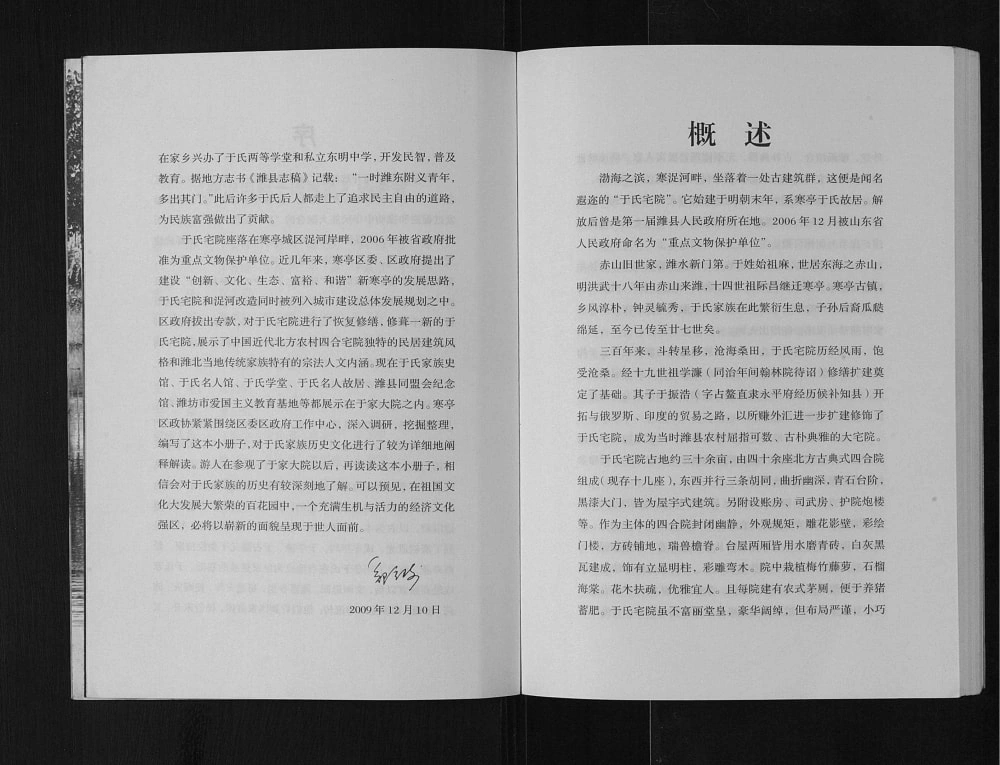 在家乡兴办了于氏两等学堂和私立东明中学，开发民智，普及
教育。据地方志书《潍县志稿》记载：“一时潍东附义青年，
多出其门。”此后许多于氏后人都走上了追求民主自由的道路，
为民族富强做出了贡献。
于氏宅院座落在寒亭城区浞河岸畔，2006年被省政府批
准为重点文物保护单位。近几年来，寒亭区委、区政府提出了
建设“创新、文化、生态、富裕、和谐”新寒亭的发展思路，
于氏宅院和浞河改造同时被列入城市建设总体发展规划之中。
区政府拨出专款，对于氏宅院进行了恢复修缮，修葺一新的于
氏宅院，展示了中国近代北方农村四合宅院独特的民居建筑风
格和潍北当地传统家族特有的宗法人文内涵。现在于氏家族史
馆、于氏名人馆、于氏学堂、于氏名人故居、潍县同盟会纪念
馆、潍坊市爱国主义教育基地等都展示在于家大院之内。寒亭
区政协紧紧围绕区委区政府工作中心，深入调研，挖掘整理，
编写了这本小册子，对于氏家族历史文化进行了较为详细地阐
释解读。游人在参观了于家大院以后，再读读这本小册子，相
信会对于氏家族的历史有较深刻地了解。可以预见，在祖国文
化大发展大繁荣的百花园中，一个充满生机与活力的经济文化
强区，必将以崭新的面貌呈现于世人面前。
2009年12月10日
概 述
渤海之滨，寒浞河畔，坐落着一处古建筑群，这便是闻名
遐迩的“于氏宅院”。它始建于明朝末年，系寒亭于氏故居。解
放后曾是第一届潍县人民政府所在地。2006年12月被山东省
人民政府命名为“重点文物保护单位”。
赤山旧世家，潍水新门第。于姓始祖麻，世居东海之赤山，
明洪武十八年由赤山来潍，十四世祖际昌继迁寒亭。寒亭古镇，
乡风淳朴，钟灵毓秀，于氏家族在此繁衍生息，子孙后裔瓜瓞
绵延，至今已传至廿七世矣。
三百年来，斗转星移，沧海桑田，于氏宅院历经风雨，饱
受沧桑。经十九世祖学濂（同治年间翰林院待诏）修缮扩建奠
定了基础。其子于振浩（字古鳌直隶永平府经历候补知县）开
拓与俄罗斯、印度的贸易之路，以所赚外汇进一步扩建修饰了
于氏宅院，成为当时潍县农村屈指可数、古朴典雅的大宅院。
于氏宅院占地约三十余亩，由四十余座北方古典式四合院
组成（现存十几座），东西并行三条胡同，曲折幽深，青石台阶，
黑漆大门，皆为屋宇式建筑。另附设账房、司武房、护院炮楼
等。作为主体的四合院封闭幽静，外观规矩，雕花影壁，彩绘
门楼，方砖铺地，瑞兽檐脊。台屋两厢皆用水磨青砖，白灰黑
瓦建成，饰有立显明柱，彩雕弯木。院中栽植梅竹藤萝，石榴
海棠。花木扶疏，优雅宜人。且每院建有农式茅厕，便于养猪
蓄肥。于氏宅院虽不富丽堂皇，豪华阔绰，但布局严谨，小巧